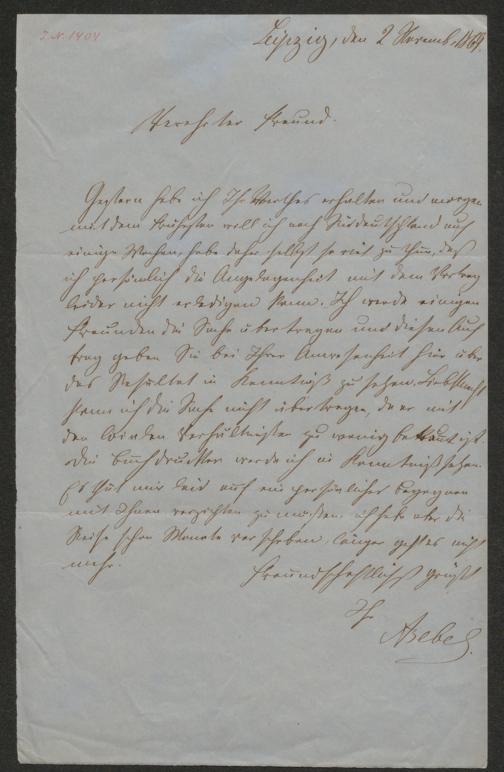 J.N. 1404
Leipzig, den 2 Novemb. 1869.
Verehrter Freund.
Gestern habe ich Ihr Werthes erhalten und morgen
mit dem Frühesten will ich nach Süddeutschland auf
einige Wochen, habe daher selbst so viel zu thun, daß
ich persönlich die Angelegenheit mit dem Vortrag
leider nicht erledigen kann. Ich werde einigen
Freunden die Sache übertragen und diesen Auf
trag geben Sie bei Ihrer Anwesenheit hier über
das Resultat in Kenntniß zu setzen. Liebknecht
kann ich die Sache nicht übertragen, da er mit
den Verhältnissen zu wenig bekannt ist.
Die Buchdrucker werde ich in Kenntniß setzen.
Es thut mir leid auf ein persönliches begegnen
mit Ihnen verzichten zu müssen, ich habe aber die
Reise schon Monate verschoben, länger geht es nicht
mehr.
Freundschaftlichst grüßt
Ihr
ABebel.